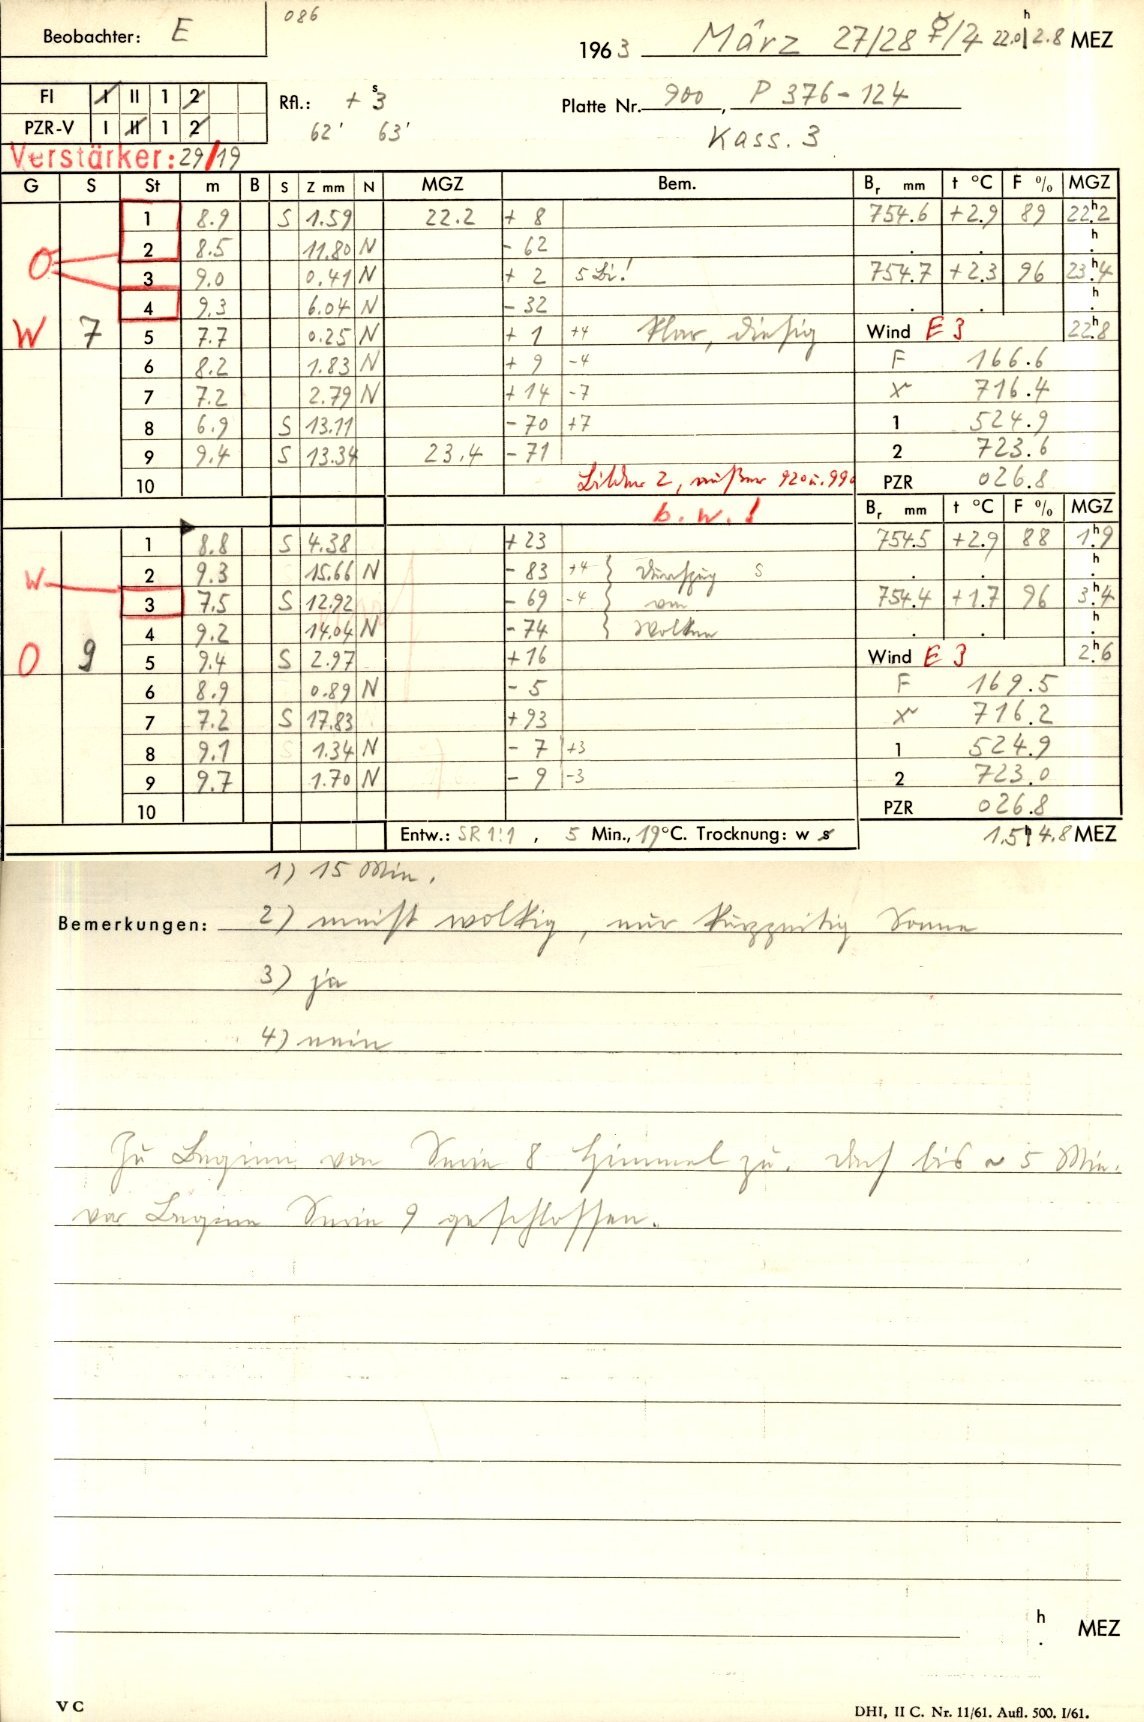 086
Beobachter: E
1963 März 27/28 ☿/♃ 22.0 h 2.8 MEZ
FI I II 1 2
Rfl.: + 3 s
Platte Nr. 900, P 376-124
PZR-V I II 1 2
62' 63'
Kass. 3
Verstärker: 29/19
G S St m B S Z mm N MGZ Bem. Br mm t °C F % MGZ
1 8.9 S 1.59 22.2 + 8 754.6 +2.9 89 22.h2
O 2 8.5 11.80 N - 62 . . h.
3 9.0 0.41 N + 2 5 Bi! 754.7 +2.3 96 23.h4
4 9.3 6.04 N - 32 . . h.
W 7 5 7.7 0.25 N + 1 +4 klar, diesig Wind E 3 22.h8
6 8.2 1.83 N + 9 -4 F 166.6
7 7.2 2.79 N + 14 -7 716.4
8 6.9 S 13.11 - 70 +7 1 524.9
9 9.4 S 13.34 23.4 - 71 2 723.6
10 Bilder 2, außer 920 u. 990 PZR 026.8
b. w. !
Br mm t °C F % MGZ
1 8.8 S 4.38 +23 754.5 +2.9 88 1.h9
W 2 9.3 15.66 N - 83 +4 } Durchzug S . . h.
3 7.5 S 12.92 - 69 -4 } von 754.4 +1.7 96 3.h4
4 9.2 14.04 N - 74 } Wolken . . h.
O 9 5 9.4 S 2.97 +16 Wind E 3 2.h6
6 8.9 0.89 N - 5 F 169.5
7 7.2 S 17.83 +93 716.2
8 9.1 1.34 N - 7 +3 1 524.9
9 9.7 1.70 N - 9 -3 2 723.0
10 PZR 026.8
Entw.: SR 1:1, 5 Min., 19°C. Trocknung: w s 1.5 h 4.8 MEZ
1) 15 Min.
Bemerkungen: 2) meist wolkig, nur kurzzeitig Sonne
3) ja
4) nein
Zu Beginn von Serie 8 Himmel zu. Dach bis ~ 5 Min.
vor Beginn Serie 9 geschlossen.
h. MEZ
V C
DHI, II C. Nr. 11/61. Aufl. 500. I/61.